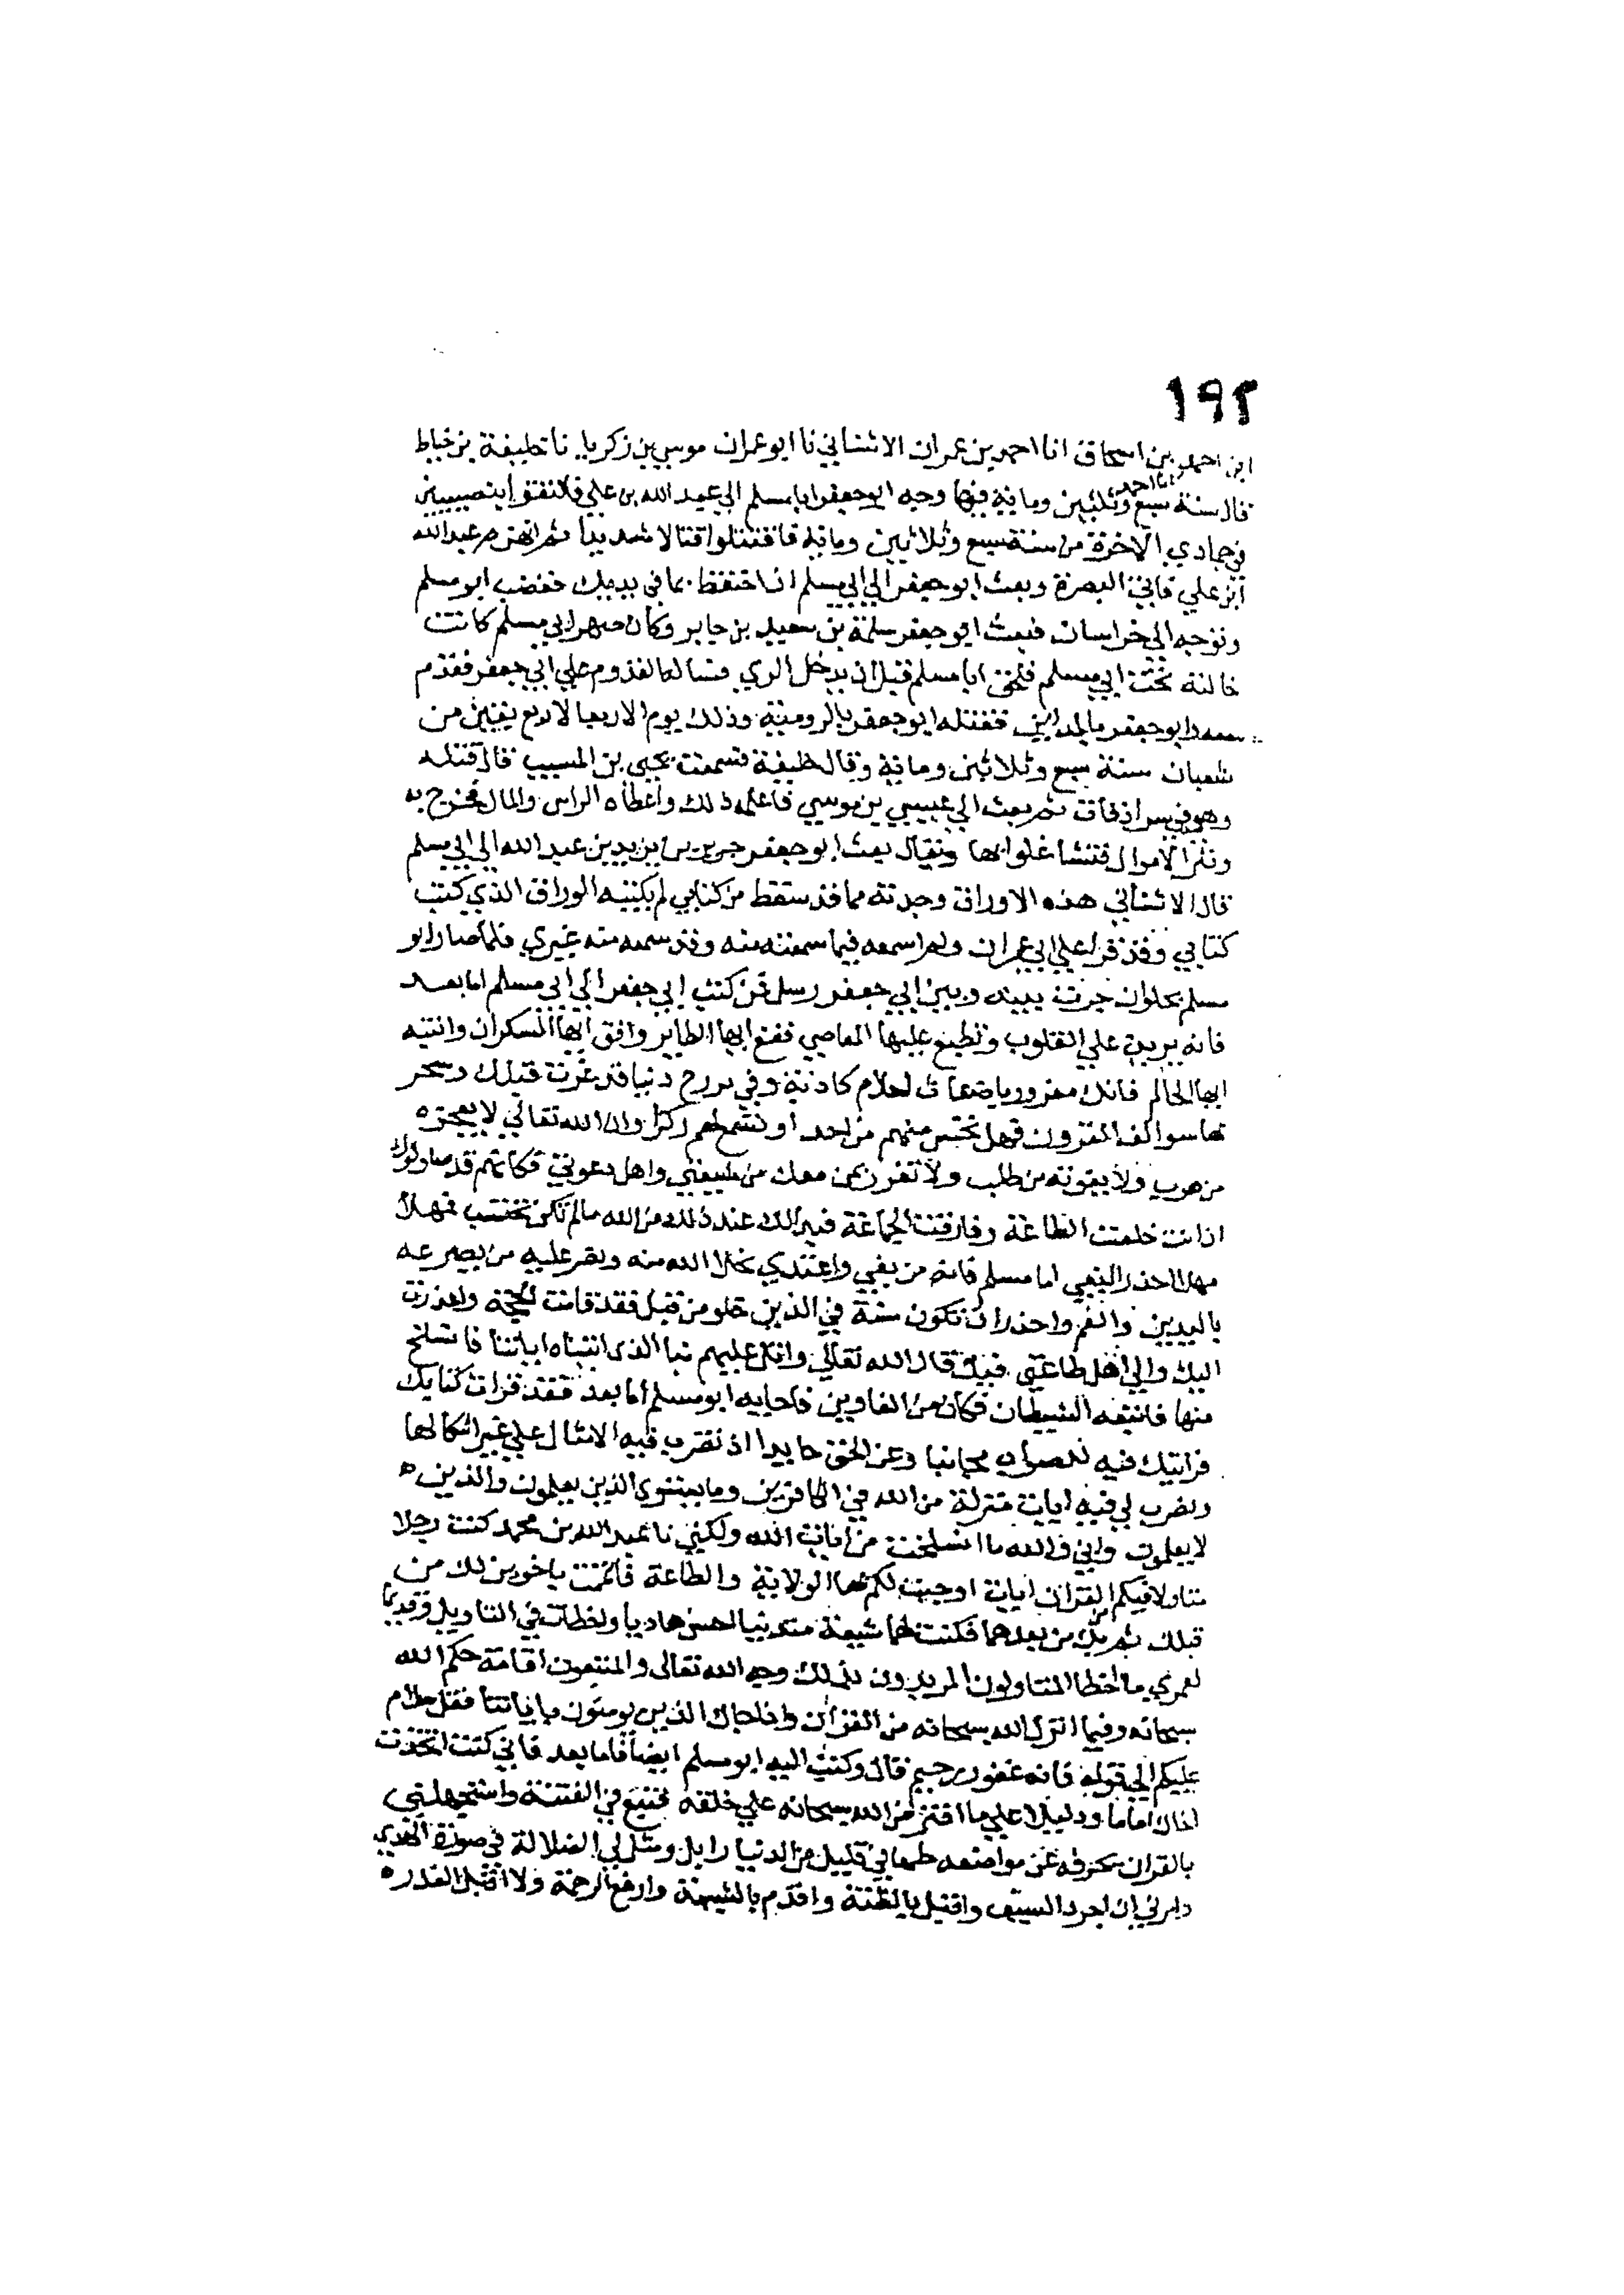 ١٩٢
ابن احمد بن اسحاق انا احمد بن عمران الاشناني نا ابو عمران موسى بن زكريا نا خليفة بن خياط
انا احمد
قال سنة سبع وثلثين وماية فيها وجه ابو جعفر ابا مسلم الي عبد الله بن علي فالتقوا بنصيبين
في جمادي الاخرة من سنة سبع وثلاثين وماية فاقتتلوا قتالا شديدا ثم انهزم عبد الله
ابن علي فاتي البصرة وبعث ابو جعفر الي ابي مسلم ان احتفظ بما في يديك فغضب ابو مسلم
وتوجه الي خراسان فبعث ابو جعفر سلمة بن سعيد بن جابر وكان صهر ابي مسلم كانت
خالته تحت ابي مسلم فلحق ابا مسلم قبل ان يدخل الري فساله القدوم علي ابي جعفر فقدم
معه وابو جعفر بالمداين فقتله ابو جعفر بالرومية وذلك يوم الاربعا لاربع بقين من
شعبان سنة سبع وثلاثين وماية وقال خليفة فسمعت يحيى بن المسيب قال قتله
وهو في سرادقات ثم بعث الي عيسي بن موسي فاعلمه ذلك واعطاه الراس والمال فخرج به
ونثر الاموال فتشاغلوا بها ويقال بعث ابو جعفر جرير بن يزيد بن عبد الله الي ابي مسلم
قال الاشناني هذه الاوراق وجدته مما قد سقط من كتابي لم يكتبه الوراق الذي كتب
كتابي وقد قرا علي ابي عمران ولم اسمعه فيما سمعته منه وقد سمعه منه غيري فلما صار ابو
مسلم بحلوان جرت بينه وبين ابي جعفر رسل فمن كتب ابي جعفر الي ابي مسلم اما بعد
فانه يرين علي القلوب ويطبع عليها المعاصي فقع ايها الطاير وافق ايها السكران وانتبه
ايها الحالم فانك مغرور باضغاث احلام كاذبة وفي برزخ دنيا قد غرت قبلك وسحر
بها سوالف القرون فهل تحس منهم من احد او تسمع لهم ركزا وان الله تعالي لا يعجزه
من هرب ولا يفوته من طلب ولا تغرر بمن معك من شيعتي واهل دعوتي فكانهم قد صاولوك
ان انت خلعت الطاعة وفارقت الجماعة فبدا لك عند ذلك من الله ما لم تكن تحتسب فمهلا
مهلا احذر البغي ابا مسلم فانه من بغي واعتدي تخلا الله منه ونصر عليه من يصرعه
باليدين والفم واحذر ان تكون سنة في الذين خلو من قبل فقد قامت الحجة واعذرت
اليك والي اهل طاعتي فيك قال الله تعالي واتل عليهم نبا الذى اتيناه اياتنا فانسلخ
منها فاتبعه الشيطان فكان من الغاوين فاجابه ابو مسلم اما بعد فقد قرات كتابك
فرايتك فيه للصواب مجانبا وعن الحق حايدا اذ تضرب فيه الامثال علي غير اشكالها
وتضرب لي فيه ايات منزلة من الله في الكافرين وما يستوي الذين يعلمون والذين
لا يعلمون واني والله ما انسلخت من ايات الله ولكني يا عبد الله بن محمد كنت رجلا
متاولا فيكم القران ايات اوجبت لكم بها الولاية والطاعة فاتممت باخوين لك من
قبلك ثم بك من بعدهما فكنت لهما شيعة متدينا احسبني هاديا واخطات في التاويل وقديما
لعمري ما اخطا المتاولون المريدون بذلك وجه الله تعالي والمتبعون اقامة حكم الله
سبحانه وفيما انزل الله سبحانه من القران واذا جاك الذين يومنون باياتنا فقل سلام
عليكم الي قوله فانه غفور رحيم قال وكتب اليه ابو مسلم ايضا اما بعد فاني كنت اتخذت
اخاك اماما ودليلا علي ما افترض الله سبحانه علي خلقه فوقع في الفتنة واستجهلني
بالقران يحرفه عن مواضعه طمعا في قليل من الدنيا زايل ومثل لي الضلالة في صورة الهدي
وامرني ان اجرد السيف واقتل بالظنة واقدم بالشبهة وارفع الرحمة ولا اقيل العذرة